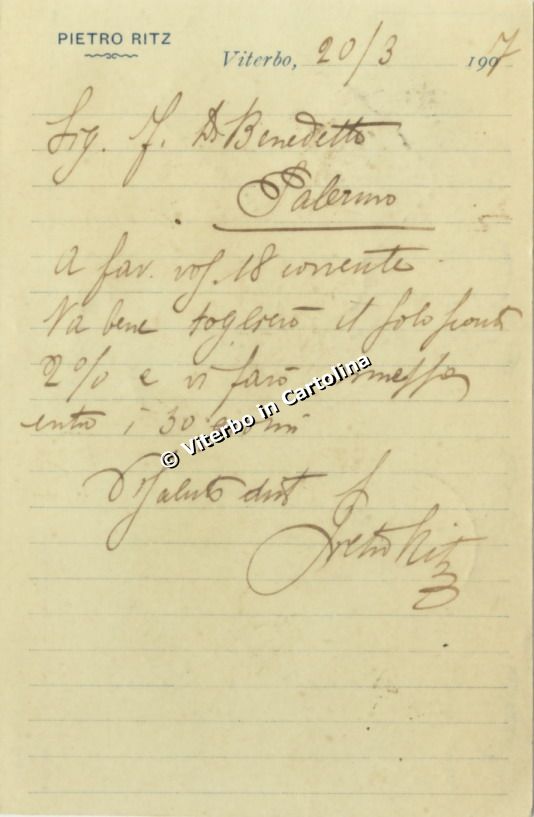 PIETRO RITZ
Viterbo, 20/3 1907
Sig. F. Di Benedetto
Palermo
A fav. vos. 18 corrente
Va bene toglierò il solo sconto
2% e vi farò rimessa
entro i 30 giorni
© Viterbo in Cartolina
Vi saluto dist
Pietro Ritz